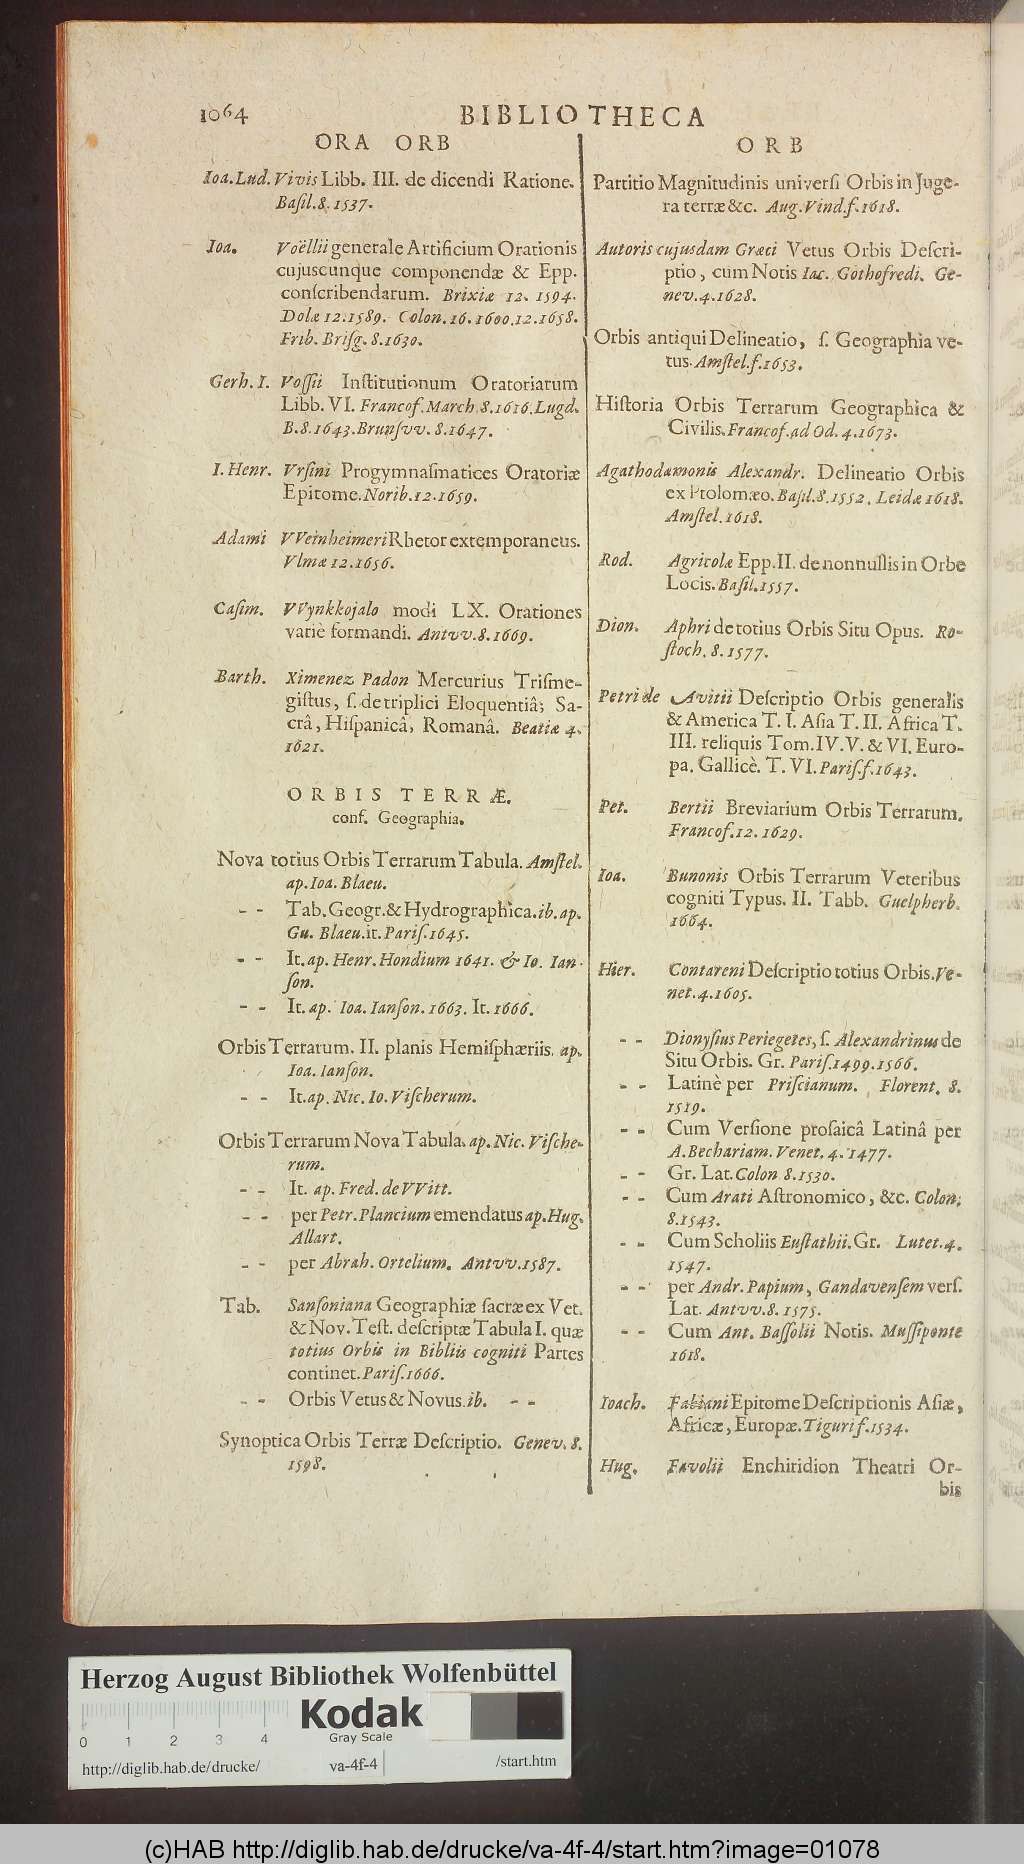 1064
BIBLIOTHECA
ORA ORB
Ioa. Lud. Vivis Libb. III. de dicendi Ratione.
Basil. 8. 1537.
Ioa. Voëllii generale Artificium Orationis
cujuscunque componendæ & Epp.
conscribendarum. Brixiæ 12. 1594.
Dolæ 12. 1589. Colon. 16. 1600. 12. 1658.
Frib. Brisg. 8. 1630.
Gerh. I. Vossii Institutionum Oratoriarum
Libb. VI. Francof. March. 8. 1616. Lugd.
B. 8. 1643. Brunsvv. 8. 1647.
I. Henr. Vrsini Progymnasmatices Oratoriæ
Epitome. Norib. 12. 1659.
Adami VVeinheimeri Rhetor extemporaneus.
Vlmæ 12. 1656.
Casim. VVynkkojalo modi LX. Orationes
variè formandi. Antvv. 8. 1669.
Barth. Ximenez Padon Mercurius Trisme-
gistus, s. de triplici Eloquentiâ; Sa-
crâ, Hispanicâ, Romanâ. Beatiæ 4.
1621.
ORBIS TERRÆ.
conf. Geographia.
Nova totius Orbis Terrarum Tabula. Amstel.
ap. Ioa. Blaeu.
- - Tab. Geogr. & Hydrographica. ib. ap.
Gu. Blaeu. it. Paris. 1645.
- - It. ap. Henr. Hondium 1641. & Io. Ian-
son.
- - It. ap. Ioa. Ianson. 1663. It. 1666.
Orbis Terrarum. II. planis Hemisphæriis. ap.
Ioa. Ianson.
- - It. ap. Nic. Io. Vischerum.
Orbis Terrarum Nova Tabula. ap. Nic. Vische-
rum.
- - It. ap. Fred. de VVitt.
- - per Petr. Plancium emendatus ap. Hug.
Allart.
- - per Abrah. Ortelium. Antvv. 1587.
Tab. Sansoniana Geographiæ sacræ ex Vet.
& Nov. Test. descriptæ Tabula I. quæ
totius Orbis in Bibliis cogniti Partes
continet. Paris. 1666.
- - Orbis Vetus & Novus. ib. - -
Synoptica Orbis Terræ Descriptio. Genev. 8.
1598.
ORB
Partitio Magnitudinis universi Orbis in Juge-
ra terræ &c. Aug. Vind. f. 1618.
Autoris cujusdam Græci Vetus Orbis Descri-
ptio, cum Notis Iac. Gothofredi. Ge-
nev. 4. 1628.
Orbis antiqui Delineatio, s. Geographia ve-
tus. Amstel. f. 1653.
Historia Orbis Terrarum Geographica &
Civilis. Francof. ad Od. 4. 1673.
Agathodæmonis Alexandr. Delineatio Orbis
ex Ptolomæo. Basil. 8. 1552. Leidæ 1618.
Amstel. 1618.
Rod. Agricolæ Epp. II. de nonnullis in Orbe
Locis. Basil. 1557.
Dion. Aphri de totius Orbis Situ Opus. Ro-
stoch. 8. 1577.
Petri de Avitii Descriptio Orbis generalis
& America T. I. Asia T. II. Africa T.
III. reliquis Tom. IV. V. & VI. Euro-
pa. Gallicè. T. VI. Paris. f. 1643.
Pet. Bertii Breviarium Orbis Terrarum.
Francof. 12. 1629.
Ioa. Bunonis Orbis Terrarum Veteribus
cogniti Typus. II. Tabb. Guelpherb.
1664.
Hier. Contareni Descriptio totius Orbis. Ve-
net. 4. 1605.
- - Dionysius Periegetes, s. Alexandrinus de
Situ Orbis. Gr. Paris. 1499. 1566.
- - Latinè per Priscianum. Florent. 8.
1519.
- - Cum Versione prosaicâ Latinâ per
A. Bechariam. Venet. 4. 1477.
- - Gr. Lat. Colon 8. 1530.
- - Cum Arati Astronomico, &c. Colon.
8. 1543.
- - Cum Scholiis Eustathii. Gr. Lutet. 4.
1547.
- - per Andr. Papium, Gandavensem vers.
Lat. Antvv. 8. 1575.
- - Cum Ant. Bassolii Notis. Mussiponte
1618.
Ioach. Fabiani Epitome Descriptionis Asiæ,
Africæ, Europæ. Tiguri f. 1534.
Hug. Favolii Enchiridion Theatri Or-
bis
Herzog August Bibliothek Wolfenbüttel
Kodak
Gray Scale
0 1 2 3 4
http://diglib.hab.de/drucke/ va-4f-4 /start.htm
(c)HAB http://diglib.hab.de/drucke/va-4f-4/start.htm?image=01078